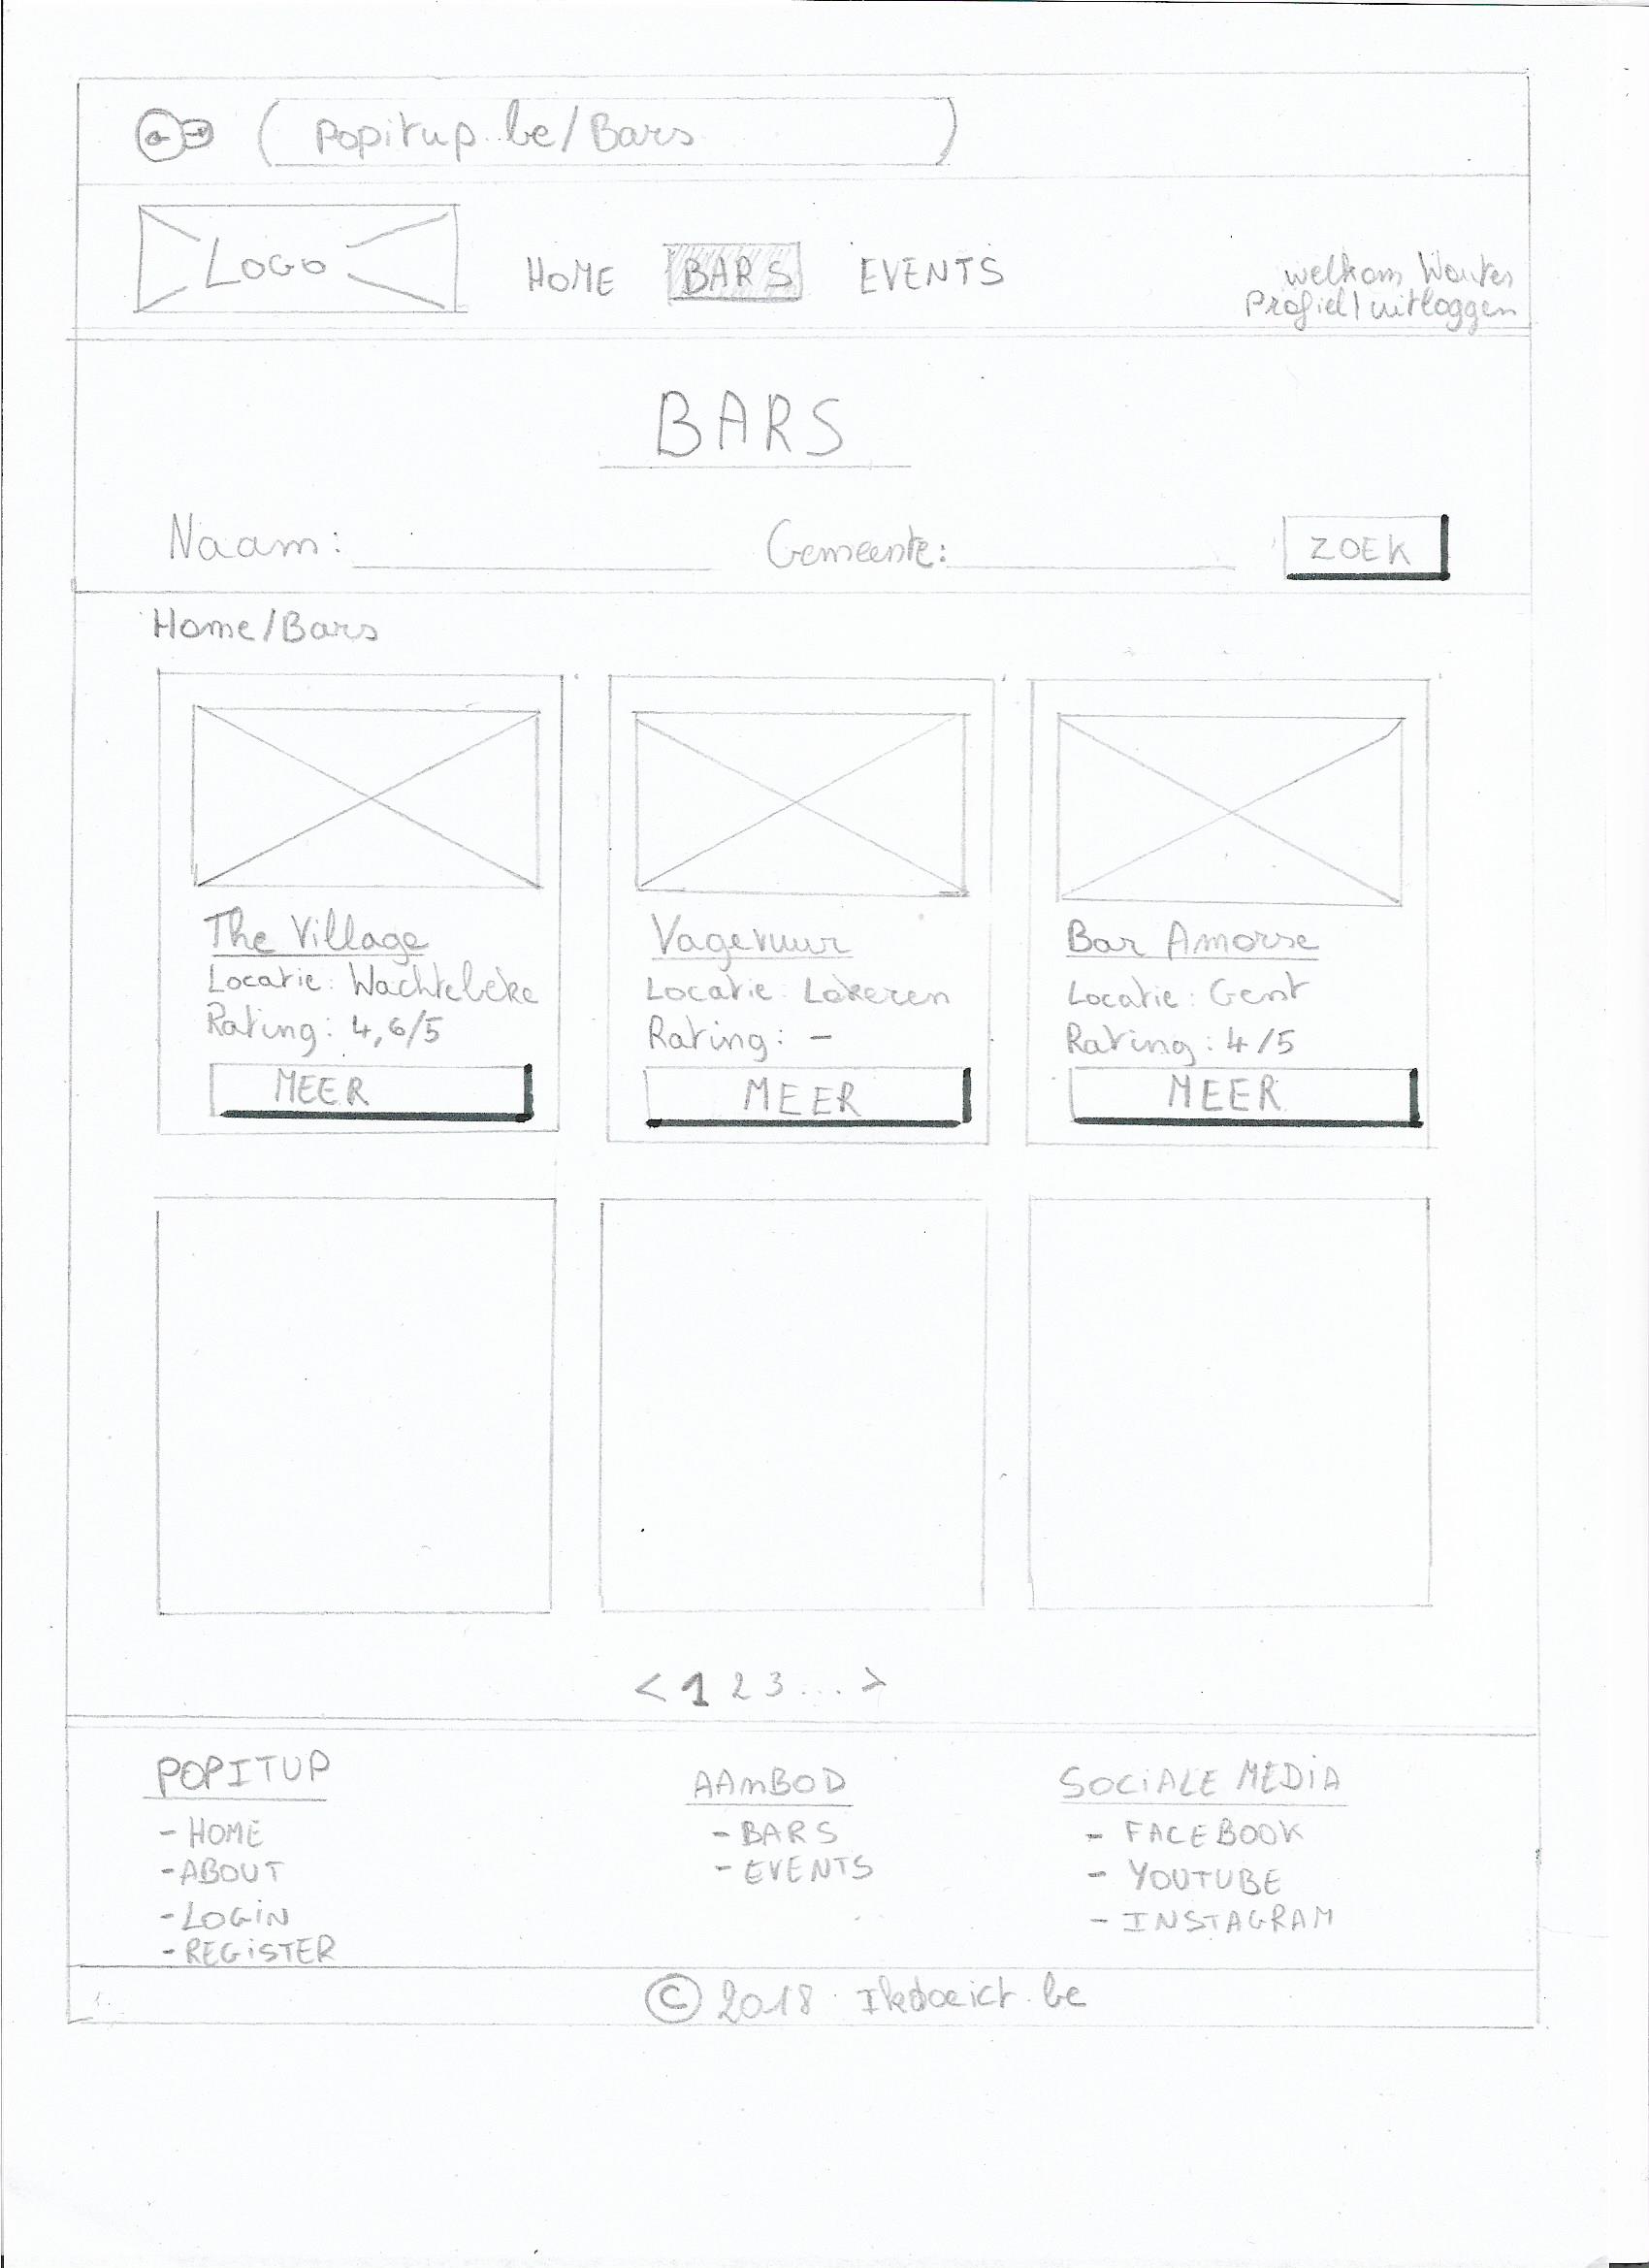 Popitup.be/Bars
LOGO HOME BARS EVENTS
welkom Wouter
Profiel | uitloggen
BARS
Naam: Gemeente: ZOEK
Home/Bars
The Village
Locatie: Wachtebeke
Rating: 4,6/5
MEER
Vagevuur
Locatie: Lokeren
Rating: -
MEER
Bar Amorse
Locatie: Gent
Rating: 4/5
MEER
< 1 2 3 ... >
POPITUP
- HOME
- ABOUT
- LOGIN
- REGISTER
AANBOD
- BARS
- EVENTS
SOCIALE MEDIA
- FACEBOOK
- YOUTUBE
- INSTAGRAM
© 2018 Ikdoeict.be